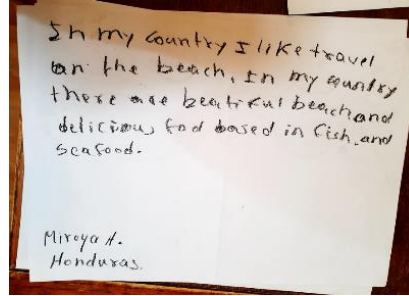 In my country I like travel
on the beach, In my country
there are beatiful beach and
delicious fod based in fish, and
seafood.
Mireya H.
Honduras.